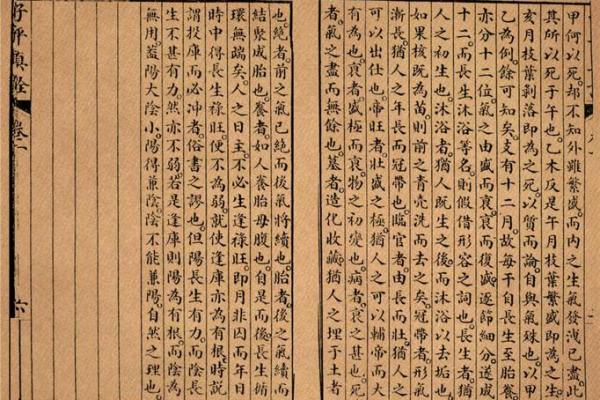 甲何以死。却不知外雖繁盛。而內之生氣發洩已盡。此
其所以死于午也。乙木反是。午月枝葉繁盛即為之生。
亥月枝葉剝落即為之死。以質而論。自與氣殊也。以甲
乙為例。餘可知矣。支有十二月。故每干自長生至胎養。
亦分十二位。氣之由盛而衰。衰而復盛。逐節細分。遂成
十二。而長生沐浴等名。則假借形容之詞也。長生者。猶
人之初生也。沐浴者。猶人既生之後。而沐浴以去垢也。
如果核既為苗。則前之青壳。洗而去之矣。冠帶者。形氣
漸長。猶人之年長而冠帶也。臨官者。由長而壯。猶人之
可以出仕也。帝旺者。壯盛之極。猶人之可以輔帝而大
有為也。衰者。盛極而衰。物之初變也。病者。衰之甚也。死
者。氣之盡而無餘也。墓者。造化收藏。猶人之埋于土者
也。絕者。前之氣已絕。而後氣將續也。胎者。後之氣續而
結聚成胎也。養者。如人養胎母腹也。自是而後。長生循
環無端矣。人之日主。不必生逢祿旺。即月非囚。而年日
時中得長生祿旺。便不為弱。就使逢庫。亦為有根。時說
謂投庫而必冲者。俗書之謬也。但陽長生有力。而陰長
生不甚有力。然亦不弱。若是逢庫。則陽為有根。而陰為
無用。蓋陽大陰小。陽得兼陰。陰不能兼陽。自然之理也。
子平真詮 卷一 六